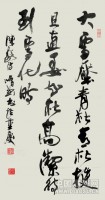 大雪壓青松青松挺
且直要知松高潔待
到雪化時
陳毅詩